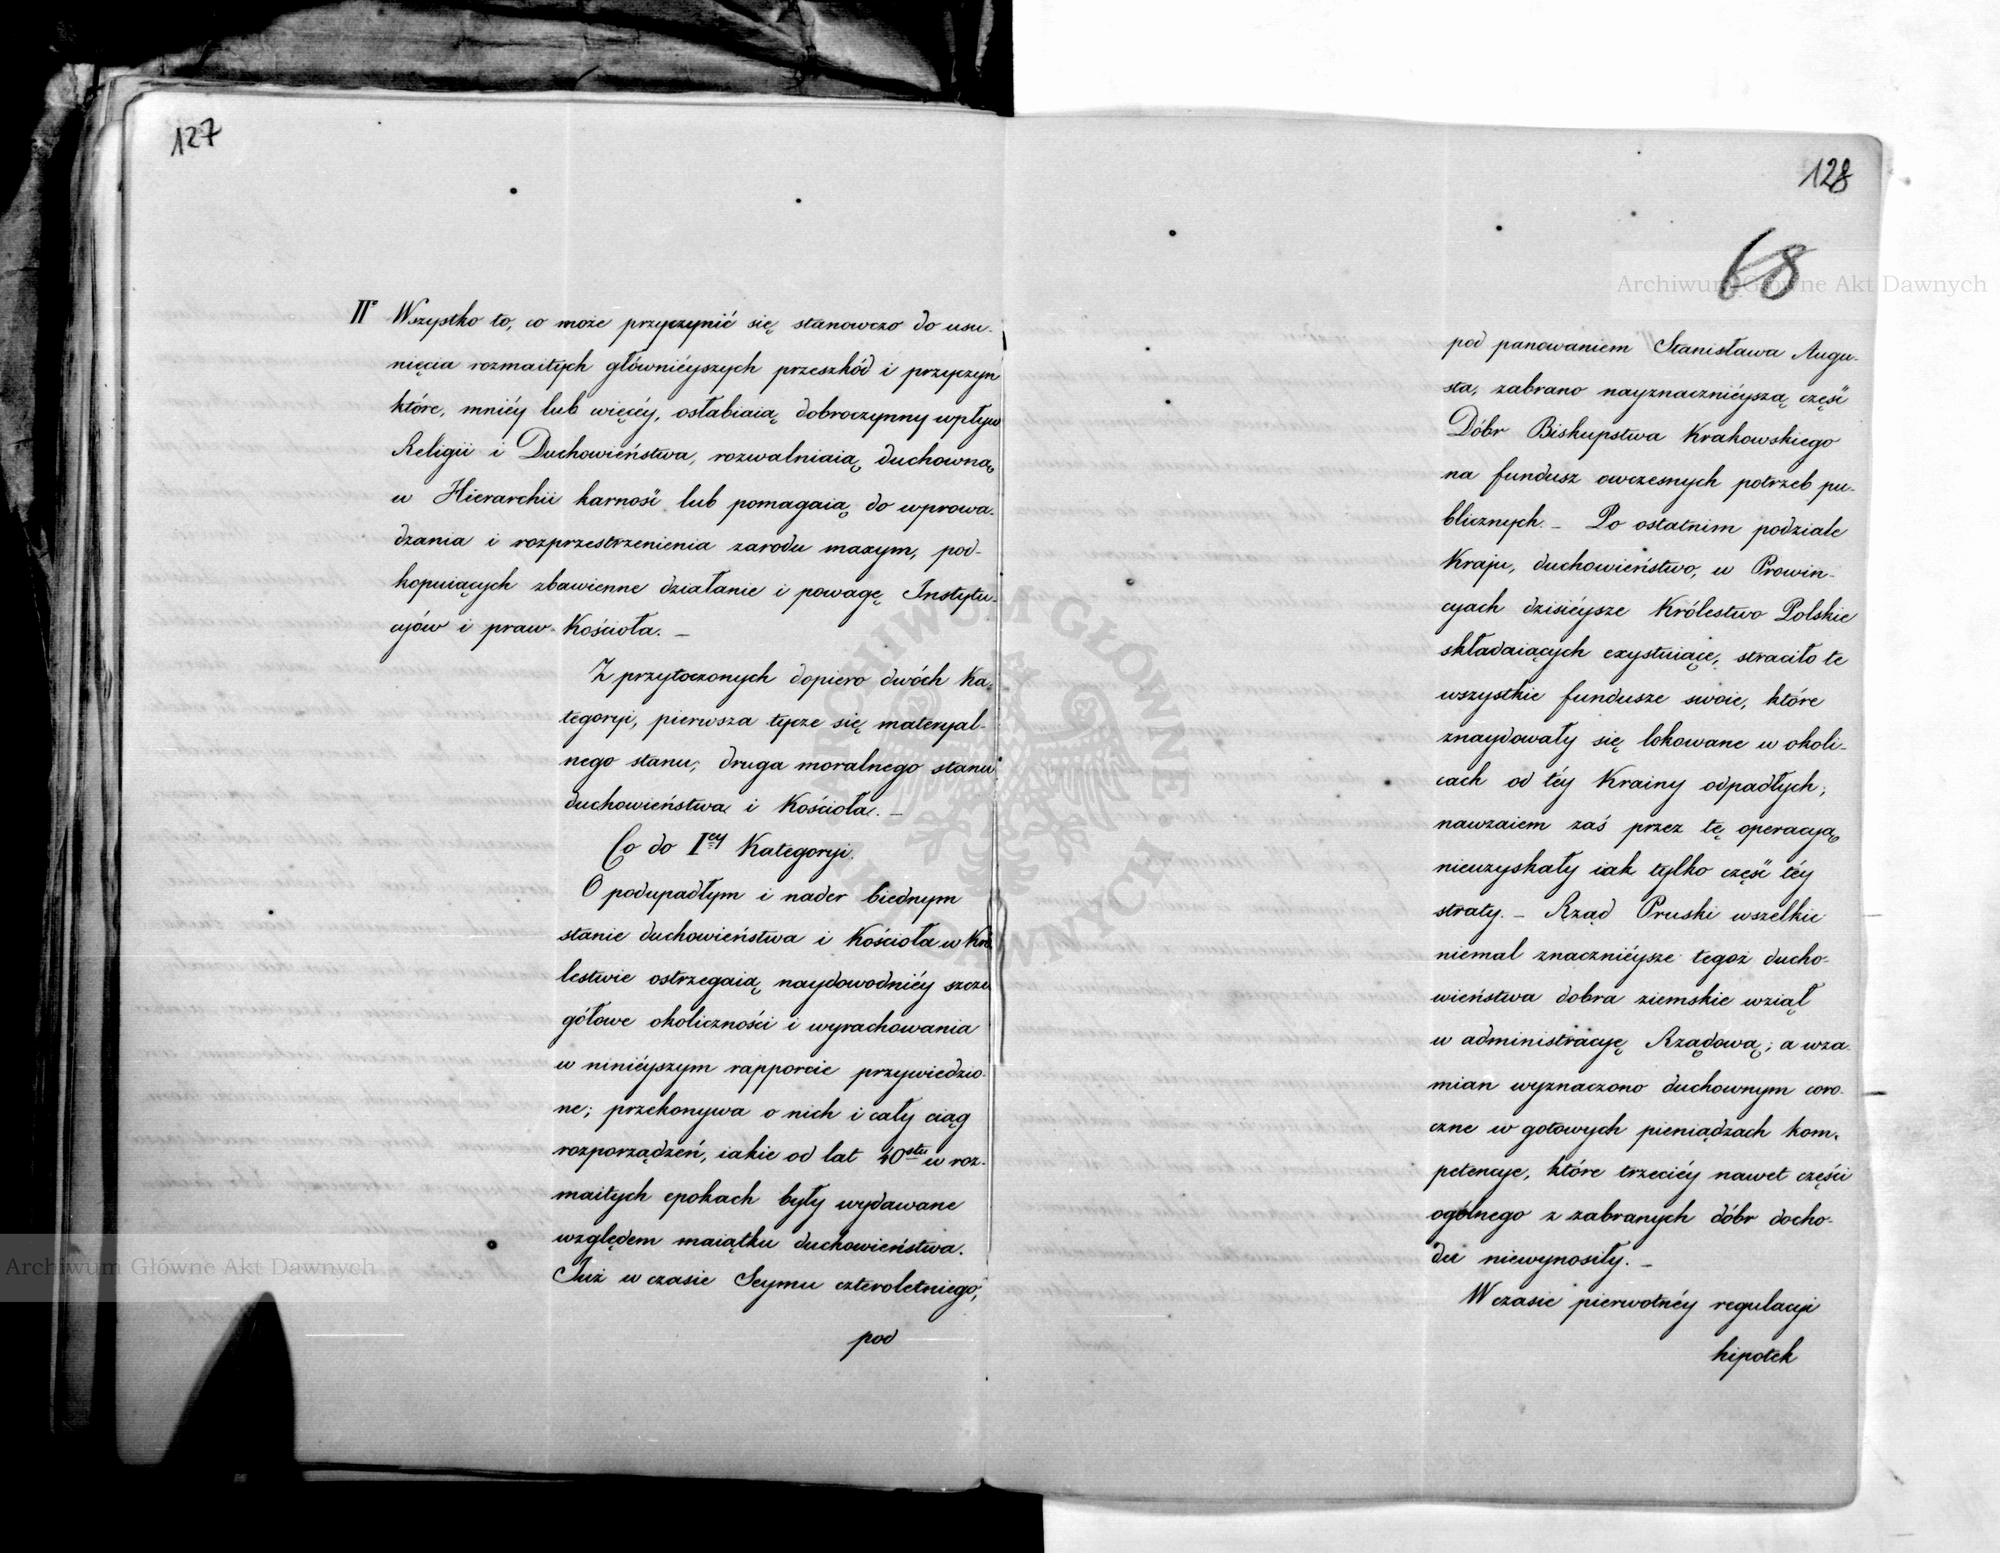 127
IIº Wszystko to, co może przyczynić się stanowczo do usu-
nięcia rozmaitych główniéyszych przeszkód i przyczyn
które, mniéy lub więcéy, osłabiaią dobroczynny wpływ
Religii i Duchowieństwa, rozwalniaią duchowną
w Hierarchii karność lub pomagaią do wprowa-
dzania i rozprzestrzenienia zarodu maxym, pod-
kopuiących zbawienne działanie i powagę Instytu-
cyów i praw Kościoła. —
Z przytoczonych dopiero dwóch Ka-
tegoryi, pierwsza tycze się materyal-
nego stanu; druga moralnego stanu
duchowieństwa i Kościoła. —
Co do Iéy Kategoryi.
O podupadłym i nader biednym
stanie duchowieństwa i Kościoła w Kró-
lestwie ostrzegaią naydowodniéy szcze-
gółowe okoliczności i wyrachowania
w niniéyszym rapporcie przywiedzio-
ne; przekonywa o nich i cały ciąg
rozporządzeń, iakie od lat 40stu w roz-
maitych epokach były wydawane
względem maiątku duchowieństwa.
Już w czasie Seymu czteroletniego,
pod
128
68
pod panowaniem Stanisława Augu-
sta, zabrano nayznaczniéyszą część
Dóbr Biskupstwa Krakowskiego
na fundusz owczesnych potrzeb pu-
blicznych. — Po ostatnim podziale
Kraju, duchowieństwo, w Prowin-
cyach dzisiéysze Królestwo Polskie
składaiących exystuiące, straciło te
wszystkie fundusze swoie, które
znaydowały się lokowane w okoli-
cach od téy Krainy odpadłych;
nawzaiem zaś przez tę operacyą
nieuzyskały iak tylko część téy
straty. — Rząd Pruski wszelkie
niemal znaczniéysze tegoż ducho-
wieństwa dobra ziemskie wziął
w administracyę Rządową; a wza-
mian wyznaczono duchownym coro-
czne w gotowych pieniądzach kom-
petencye, które trzeciéy nawet części
ogólnego z zabranych dóbr docho-
du niewynosiły. —
W czasie pierwotnéy regulacyi
hipotek
Archiwum Główne Akt Dawnych
Archiwum Główne Akt Dawnych
ARCHIWUM GŁÓWNE AKT DAWNYCH